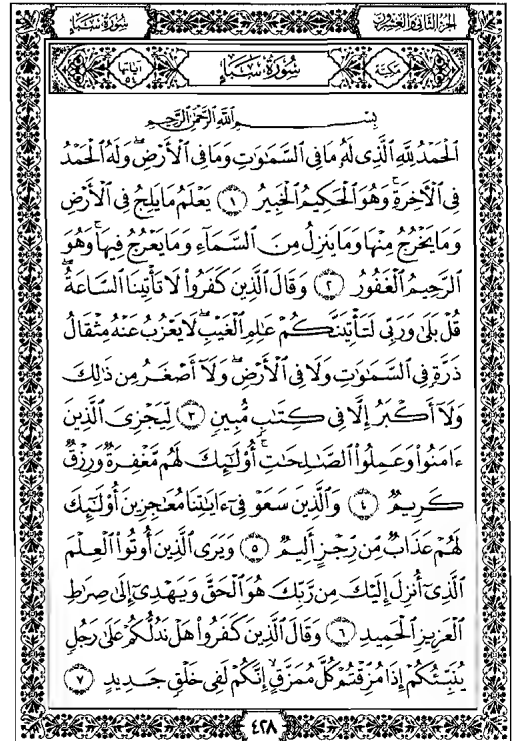 الجزء الثاني والعشرون
سورة سبإ
مكية
سُورَةُ سَبَإٍ
آياتها ٥٤
بِسْمِ ٱللَّهِ ٱلرَّحْمَٰنِ ٱلرَّحِيمِ
ٱلْحَمْدُ لِلَّهِ ٱلَّذِى لَهُۥ مَا فِى ٱلسَّمَٰوَٰتِ وَمَا فِى ٱلْأَرْضِ ۖ وَلَهُ ٱلْحَمْدُ
فِى ٱلْـَٔاخِرَةِ ۚ وَهُوَ ٱلْحَكِيمُ ٱلْخَبِيرُ ١ يَعْلَمُ مَا يَلِجُ فِى ٱلْأَرْضِ
وَمَا يَخْرُجُ مِنْهَا وَمَا يَنزِلُ مِنَ ٱلسَّمَآءِ وَمَا يَعْرُجُ فِيهَا ۚ وَهُوَ
ٱلرَّحِيمُ ٱلْغَفُورُ ٢ وَقَالَ ٱلَّذِينَ كَفَرُوا۟ لَا تَأْتِينَا ٱلسَّاعَةُ ۖ
قُلْ بَلَىٰ وَرَبِّى لَتَأْتِيَنَّكُمْ عَٰلِمِ ٱلْغَيْبِ ۖ لَا يَعْزُبُ عَنْهُ مِثْقَالُ
ذَرَّةٍ فِى ٱلسَّمَٰوَٰتِ وَلَا فِى ٱلْأَرْضِ ۖ وَلَآ أَصْغَرُ مِن ذَٰلِكَ
وَلَآ أَكْبَرُ إِلَّا فِى كِتَٰبٍ مُّبِينٍ ٣ لِّيَجْزِىَ ٱلَّذِينَ
ءَامَنُوا۟ وَعَمِلُوا۟ ٱلصَّٰلِحَٰتِ ۚ أُو۟لَٰٓئِكَ لَهُم مَّغْفِرَةٌ وَرِزْقٌ
كَرِيمٌ ٤ وَٱلَّذِينَ سَعَوْ فِىٓ ءَايَٰتِنَا مُعَٰجِزِينَ أُو۟لَٰٓئِكَ
لَهُمْ عَذَابٌ مِّن رِّجْزٍ أَلِيمٌ ٥ وَيَرَى ٱلَّذِينَ أُوتُوا۟ ٱلْعِلْمَ
ٱلَّذِىٓ أُنزِلَ إِلَيْكَ مِن رَّبِّكَ هُوَ ٱلْحَقَّ وَيَهْدِىٓ إِلَىٰ صِرَٰطِ
ٱلْعَزِيزِ ٱلْحَمِيدِ ٦ وَقَالَ ٱلَّذِينَ كَفَرُوا۟ هَلْ نَدُلُّكُمْ عَلَىٰ رَجُلٍ
يُنَبِّئُكُمْ إِذَا مُزِّقْتُمْ كُلَّ مُمَزَّقٍ إِنَّكُمْ لَفِى خَلْقٍ جَدِيدٍ ٧
٤٢٨